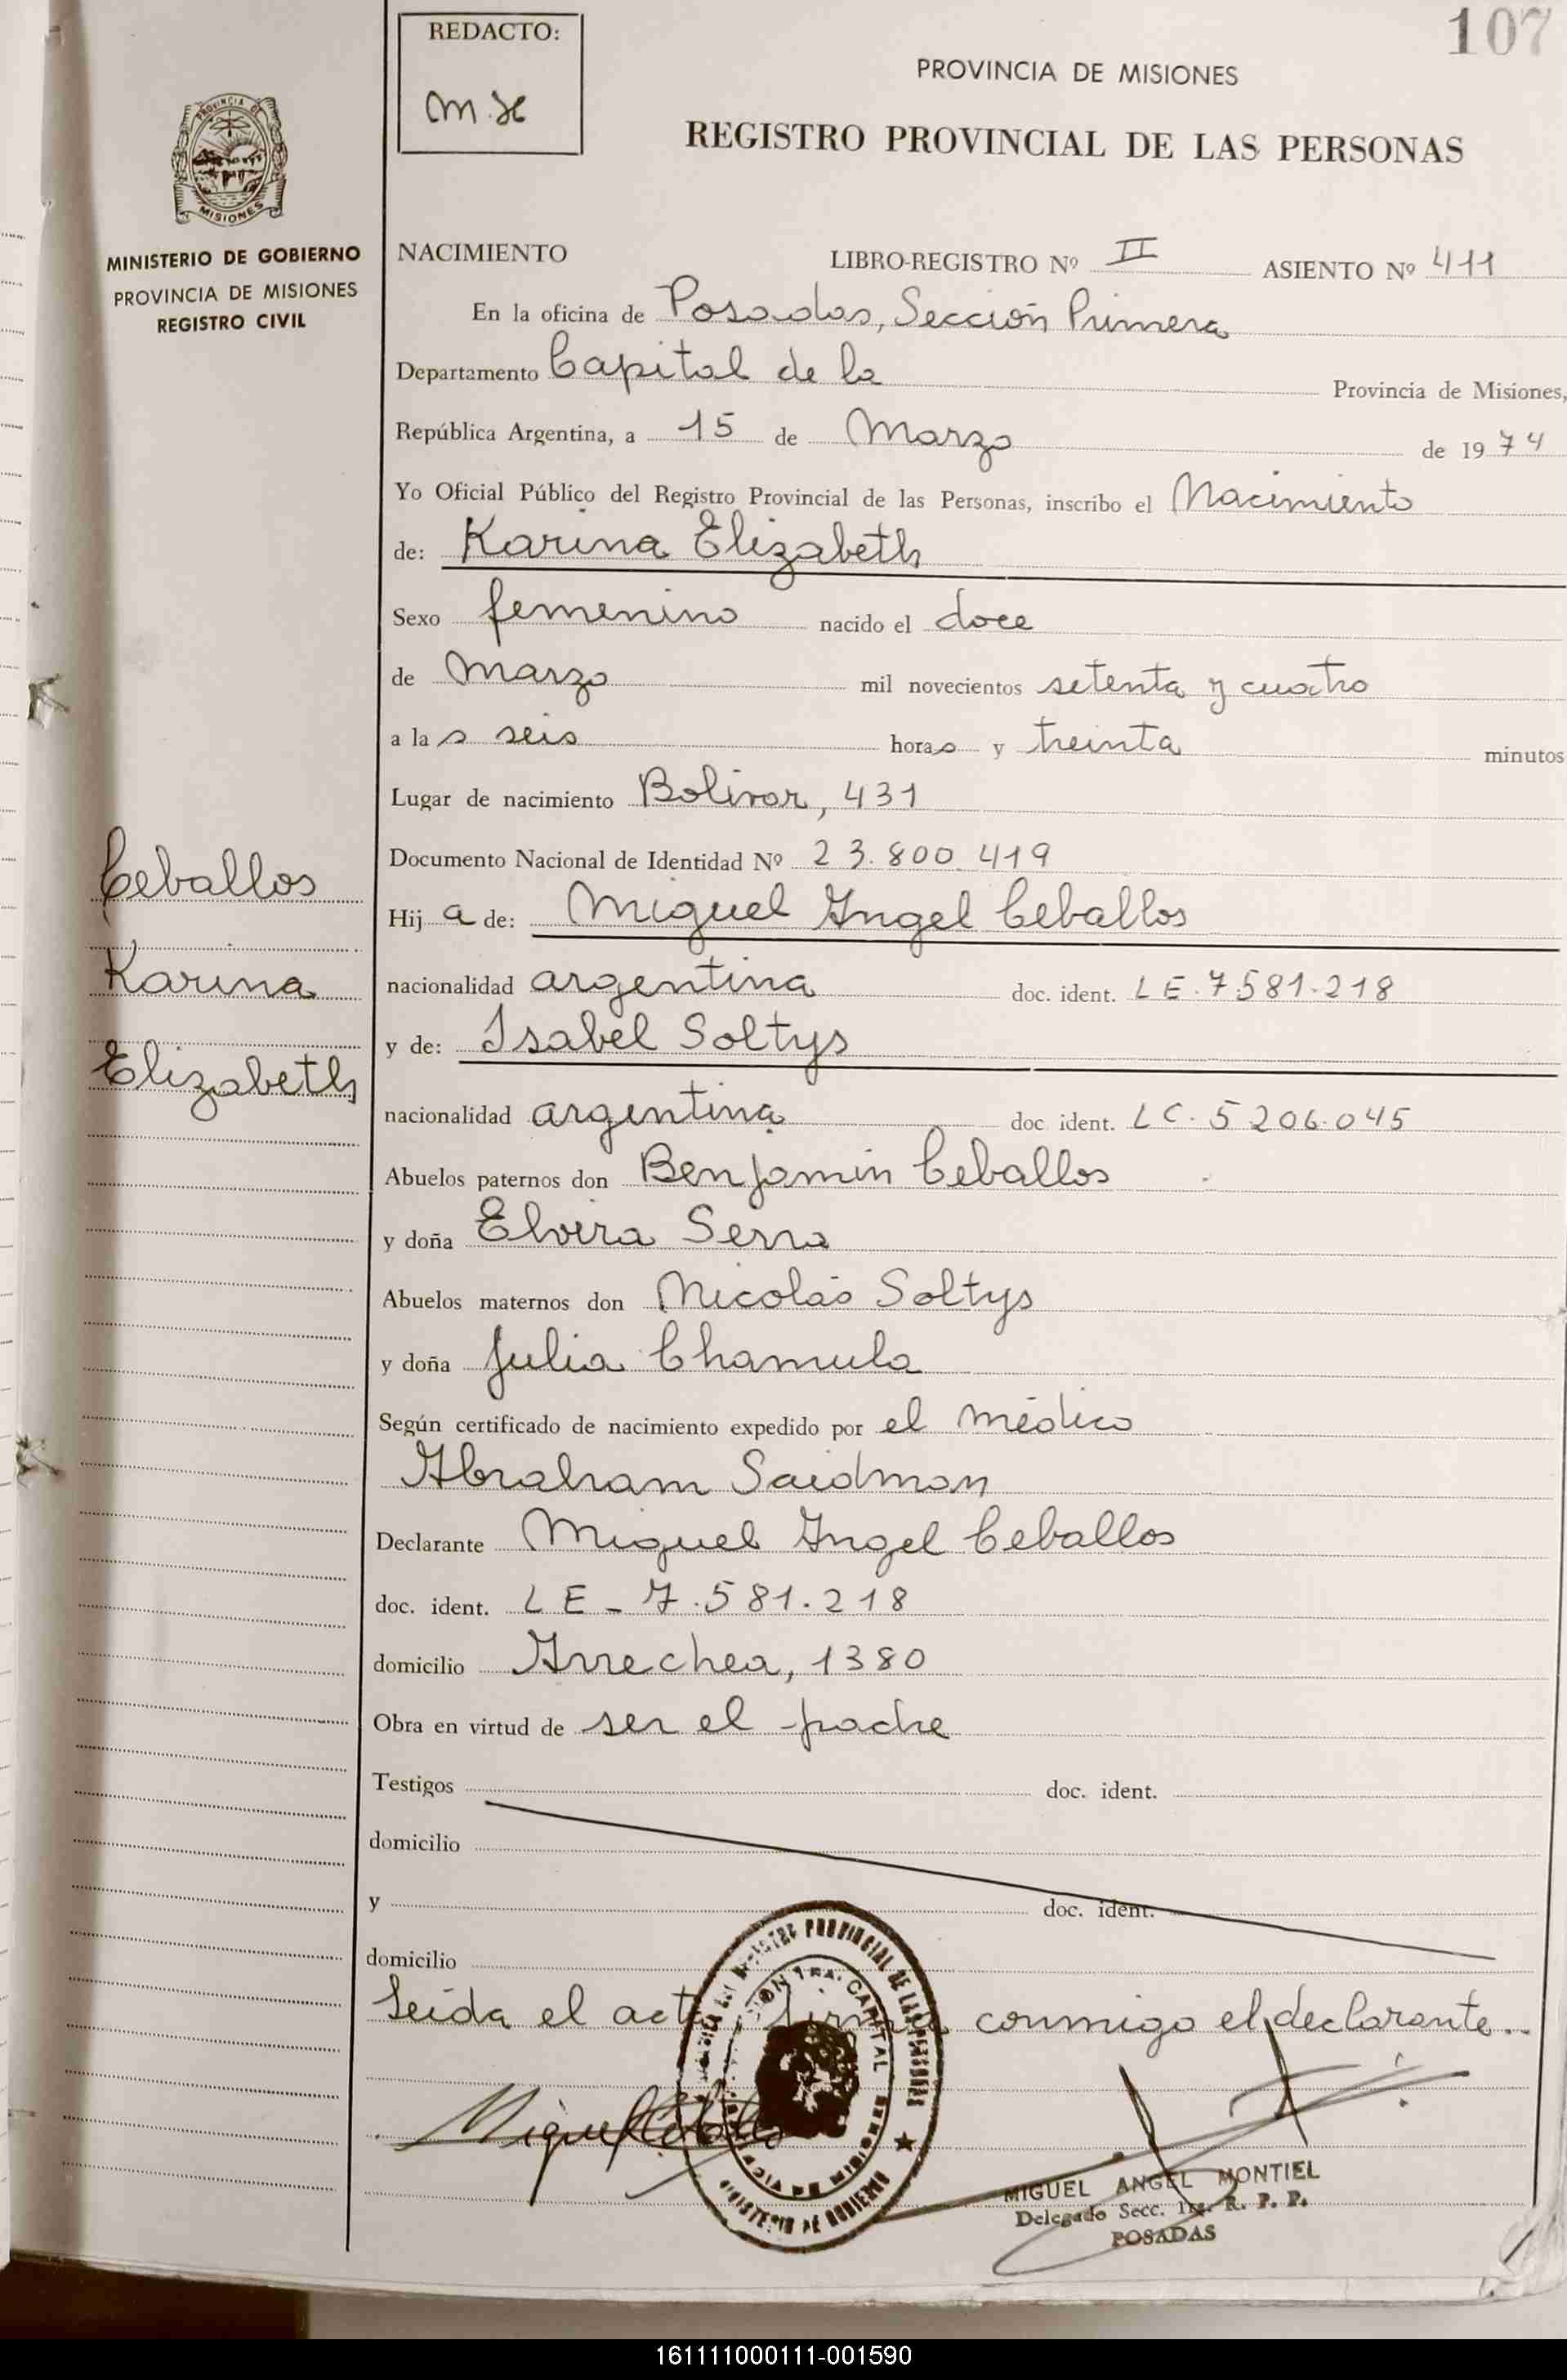 107
REDACTO:
PROVINCIA DE MISIONES
REGISTRO PROVINCIAL DE LAS PERSONAS
PROVINCIA DE
MISIONES
MINISTERIO DE GOBIERNO
PROVINCIA DE MISIONES
REGISTRO CIVIL
NACIMIENTO LIBRO-REGISTRO Nº II ASIENTO Nº 411
En la oficina de Posadas, Sección Primera
Departamento Capital de la Provincia de Misiones,
República Argentina, a 15 de Marzo de 1974
Yo Oficial Público del Registro Provincial de las Personas, inscribo el Nacimiento
de: Karina Elizabeth
Sexo femenino nacido el doce
de Marzo mil novecientos setenta y cuatro
a las seis horas y treinta minutos
Lugar de nacimiento Bolivar, 431
Documento Nacional de Identidad Nº 23.800.419
Ceballos
Karina
Elizabeth
Hija de: Miguel Angel Ceballos
nacionalidad argentina doc. ident. LE.7.581.218
y de: Isabel Soltys
nacionalidad argentina doc ident. LC.5206.045
Abuelos paternos don Benjamin Ceballos
y doña Elvira Serra
Abuelos maternos don Nicolás Soltys
y doña Julia Chamula
Según certificado de nacimiento expedido por el médico
Abraham Saidman
Declarante Miguel Angel Ceballos
doc. ident. LE-7.581.218
domicilio Arrechea, 1380
Obra en virtud de ser el padre
Testigos doc. ident.
domicilio
y doc. ident.
domicilio
Leída el acta firma conmigo el declarante..
MIGUEL ANGEL MONTIEL
Delegado Secc. 1ra. R. P. P.
POSADAS
161111000111-001590